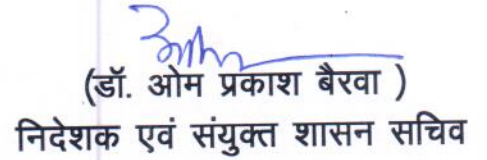 (डॉ. ओम प्रकाश बैरवा )
निदेशक एवं संयुक्त शासन सचिव